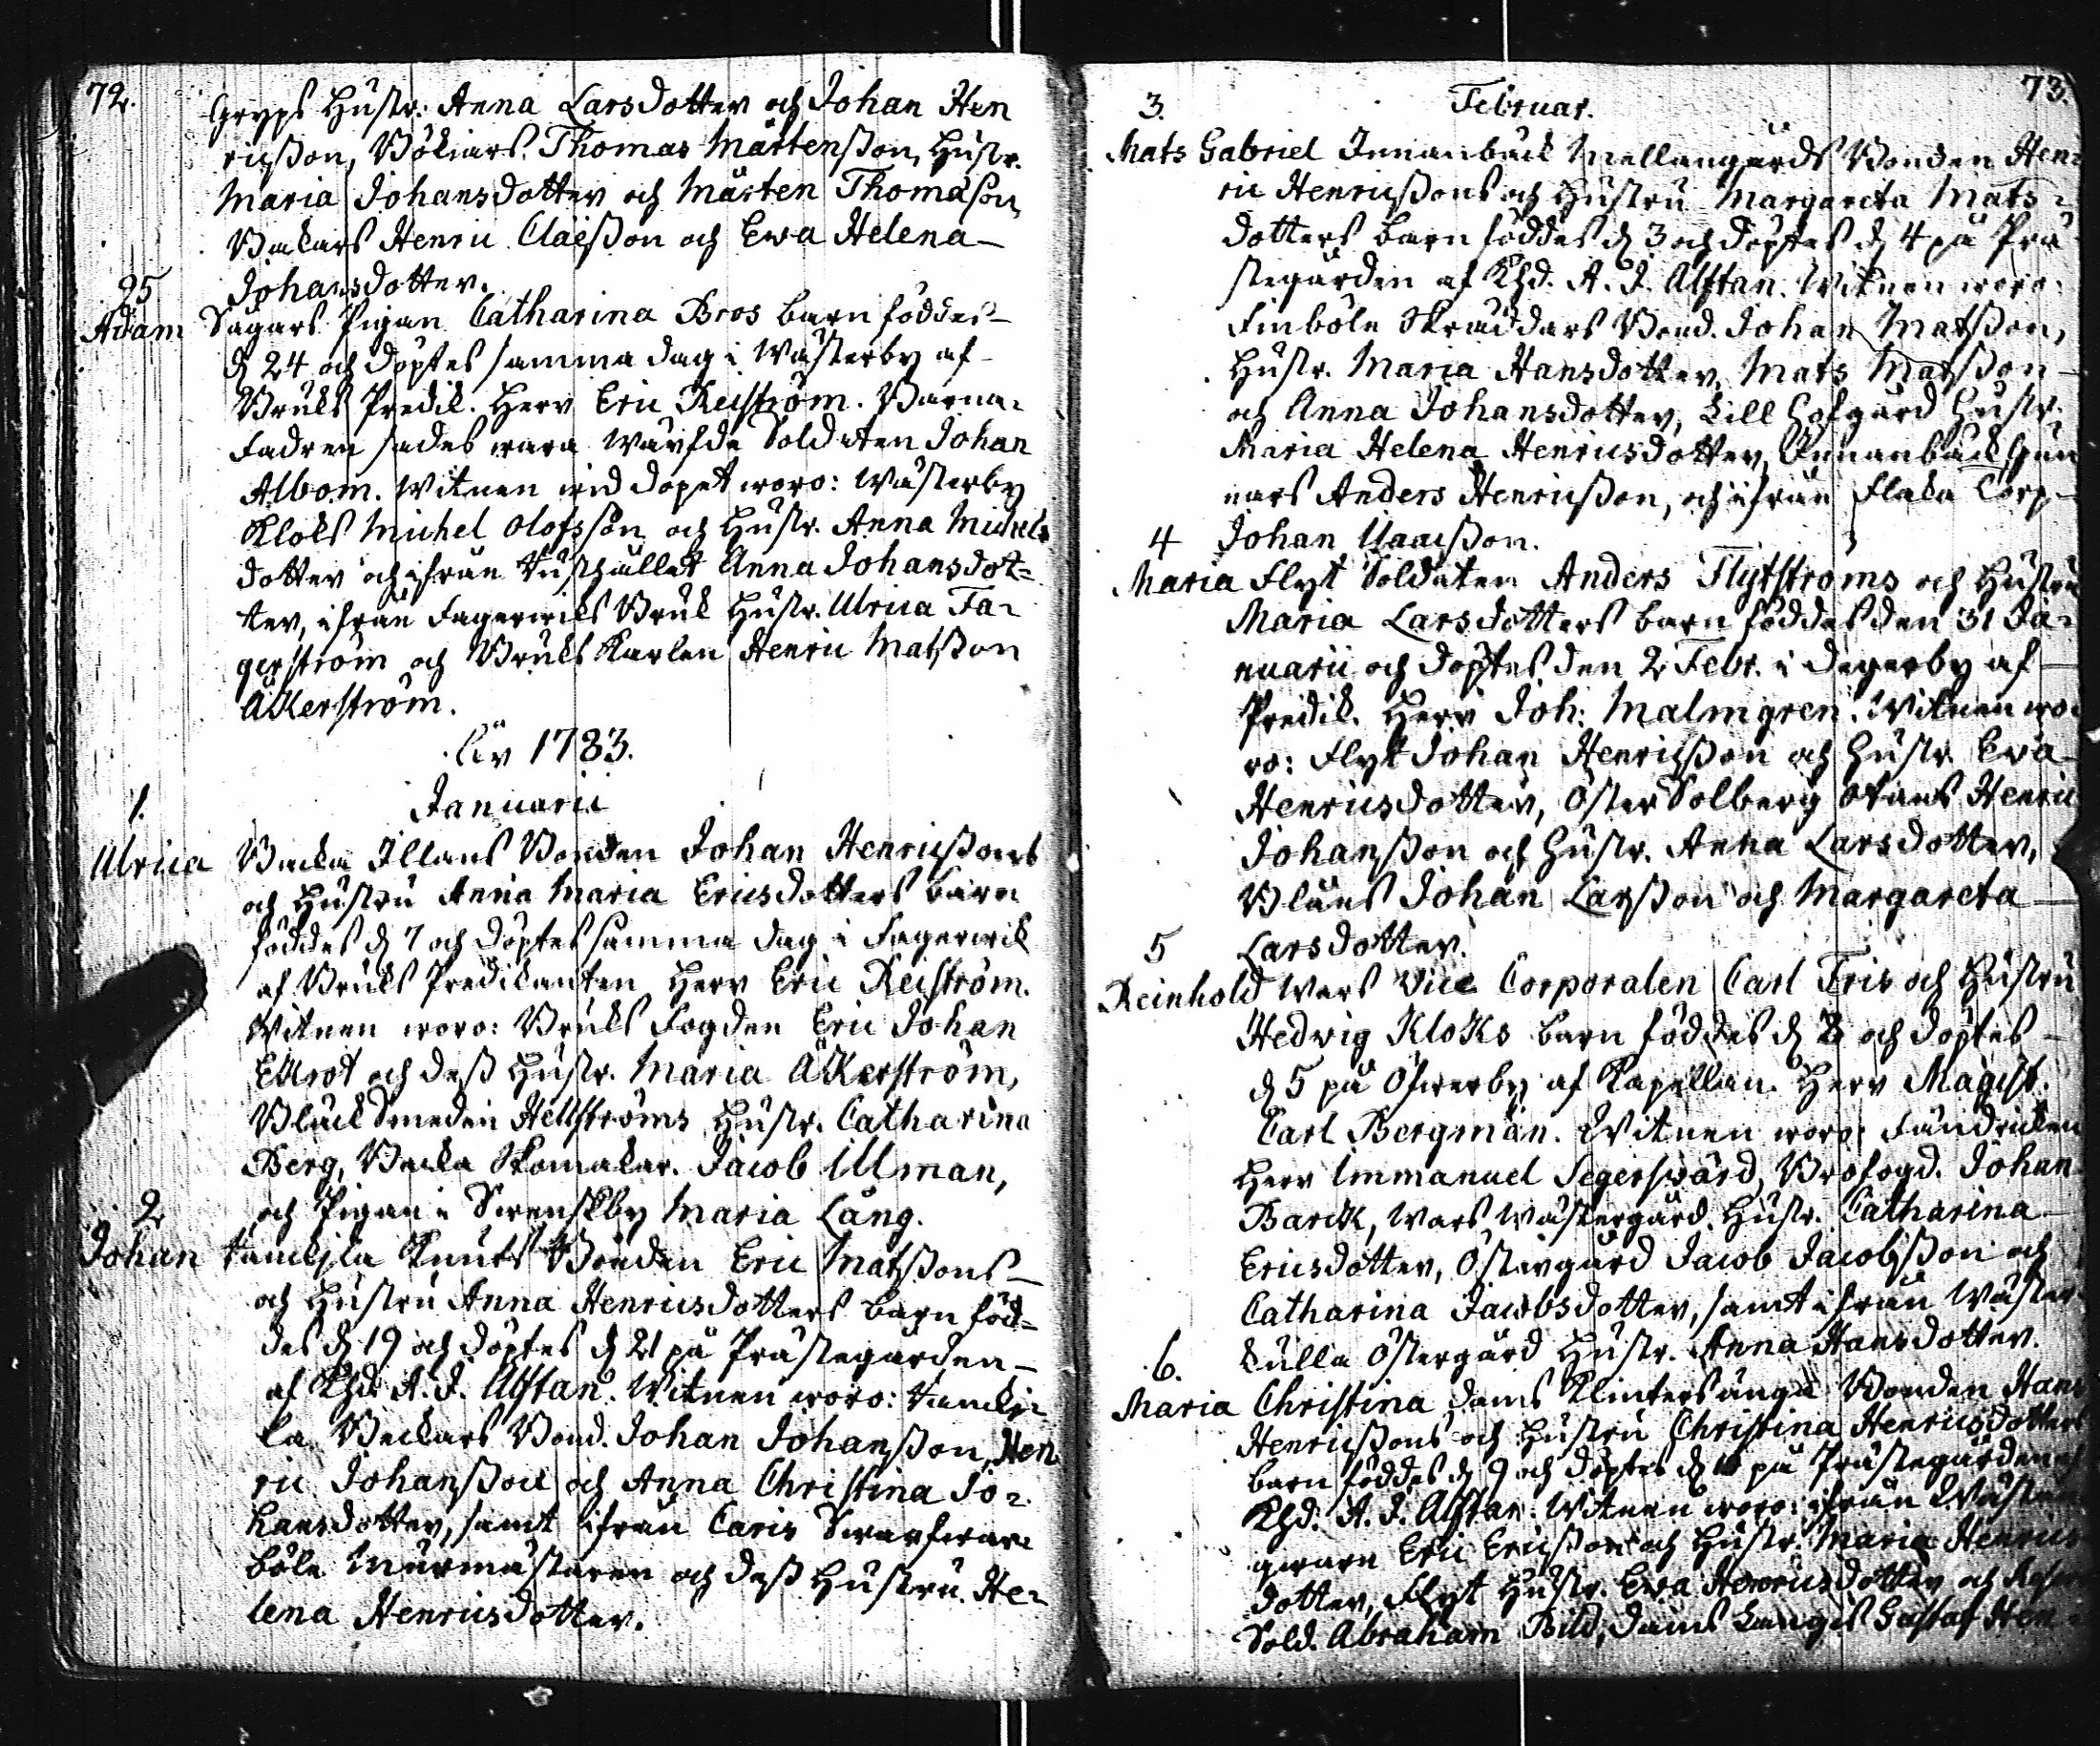 72.
Gryps Hustr: Anna Larsdotter och Johan Hen
ricsson, Bökars Thomas Mårtensson, Hustr.
Maria Johansdotter och Mårten Thomason,
Henric Claësson och Ewa Helena
Johansdotter.
25
Adam Sågars Pigan Catharina Bros barn föddes
d. 24 och döptes samma dag i Wästerby af
Bruks Predik. Herr Eric Reiström. Barna-
fadren sades wara wärfda Soldaten Johan
Albom. Witnen wid dopet woro: Wästerby
Kloks Michel Olofsson och Hustr. Anna Michels
dotter och ifrån Anna Johansdot=
ter, ifrån Fagerwiks Bruk Hustr. Ulrica Fa-
gerström och Bruks Karlen Henric Matsson
Åkerström.
År 1783.
Januarii
1.
Ulrica Backa Illans Bonden Johan Henricssons
och Hustru Anna Maria Ericsdotters barn
föddes d. 7 och döptes samma dag i Fagerwik
af Bruks Predikanten Herr Eric Reiström.
Witnen woro: Bruks Fogden Eric Johan
Ekrot och dess Hustr. Maria Åkerström,
Hellströms Hustr. Catharina
Berg, Backa Skomakar. Jacob Illman,
och Pigan i Swenskby Maria Lång.
2
Johan Knuts Bonden Eric Matssons
och Hustru Anna Henricsdotters barn föd=
des d. 19 och döptes d. 21 på Prästegården
af Khd. A. J. Alftan. Witnen woro:
la Backars Bond. Johan Johansson, Hen
ric Johansson och Anna Christina Jo-
hansdotter, samt ifrån Caris
böle Murmästaren och dess Hustru He-
lena Henricsdotter.
73.
3. Februar.
Mats Gabriel Innanbäck Mellangårds Bonden Hen-
ric Henricssons och Hustru Margareta Mats-
dotters barn föddes d. 3 och döptes d. 4 på Prä
stegården af Khd. A. J. Alftan. Witnen woro:
Finböle Skräddars Bond. Johan Matsson,
Hustr. Maria Hansdotter, Mats Matsson
och Anna Johansdotter, Lill Hofgård Hustr.
Maria Helena Henricsdotter, Innanbäck Gun
nars Anders Henricsson, och ifrån Flaka Corp.
4 Johan Claaesson.
Maria Flyt Soldaten Anders Flytströms och Hustru
Maria Larsdotters barn föddes den 31 Ja-
nuarii och döptes den 2 Febr. i Degerby af
Predik. Herr Joh: Malmgren. Witnen wo-
ro: Flyt Johan Henricsson och Hustr. Ewa
Henricsdotter, Öster Solberg Henric
Johansson och Hustr. Anna Larsdotter,
Johan Larsson och Margareta
5 Larsdotter.
Reinhold Wars Vice Corporalen Carl Fris och Hustru
Hedwig Kloks barn föddes d. och döptes
d. 5 på Öfwerby af Kapellan. Herr Magist.
Carl Bergman. Witnen woro: Fändricken
Herr Immanuel Segerswärd, Brofogd. Johan
Barck, Wars Wästergård Hustr. Catharina
Ericsdotter, Östergård Jacob Jacobsson och
Catharina Jacobsdotter, samt ifrån Wäster
6. kulla Östergård Hustr. Anna Hansdotter.
Maria Christina Dans Klinters änga Bonden Hans
Henricssons och Hustru Christina Henricsdotters
barn föddes d. 9 och döptes d. på Prästegården af
Khd. A. J. Alftan. Witnen woro: ifrån
Eric Ericsson och Hustr. Maria Henrics
dotter, Flyt Hustr. Ewa Henricsdotter och
Sold. Abraham Bild, Dans Gustaf Hen-